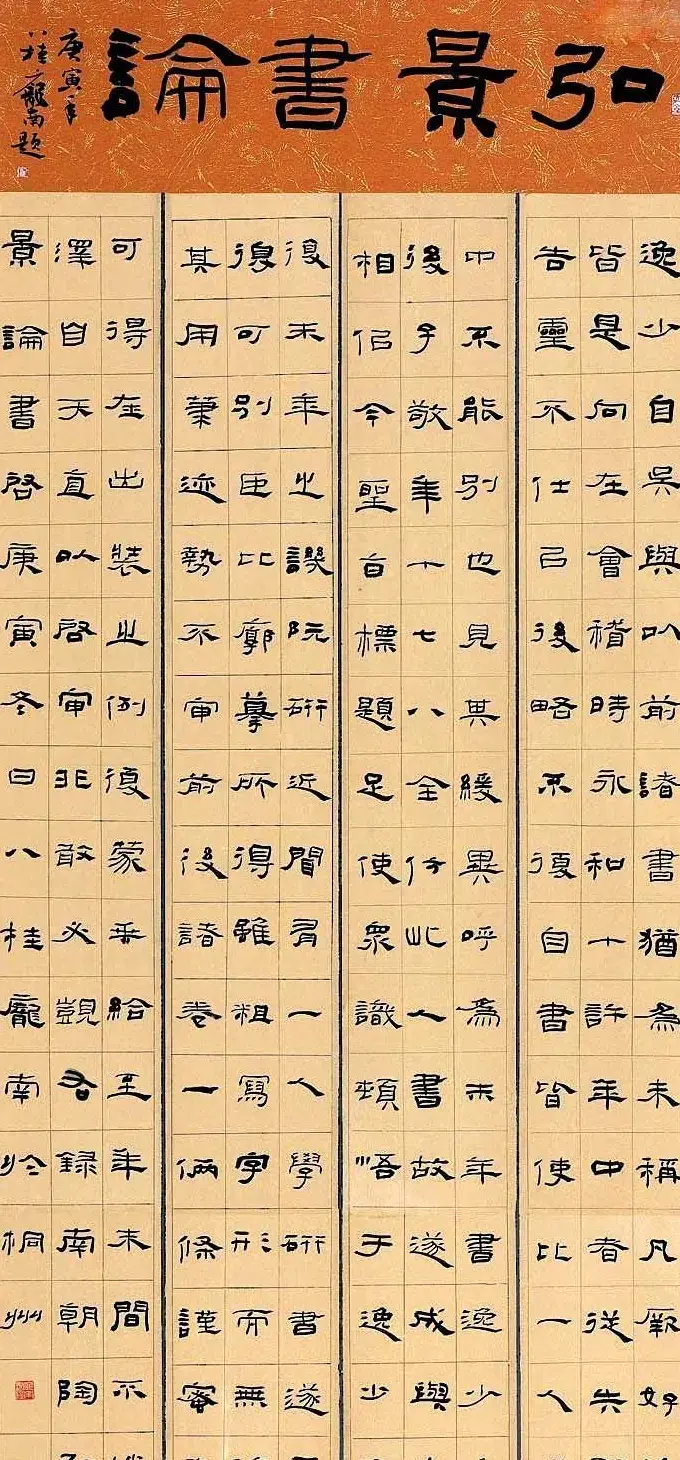 弘景書論
庚寅年
八桂龐南題
逸少自吳興以前諸書猶為未稱凡厥好
皆是向在會稽時永和十許年中者從失
告靈不仕已後略不復自書皆使此一人
中不能別也見其緩異呼為末年書逸少
後子敬年十七八全仿此人書故遂成與
相似今聖旨標題足使眾識頓悟于逸少
復末年之譏阮研近聞有一人學研書遂
復可別臣比廓摹所得雖粗寫字形而無
其用筆迹勢不審前後諸卷一兩條謹密
可得在出裝之例復蒙垂給至年末間不
澤自天直以啓審非敢必覬右録南朝陶
景論書啓庚寅冬日八桂龐南於桐州